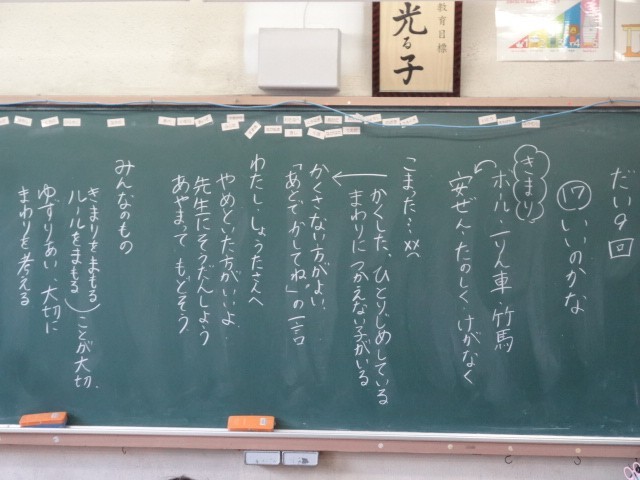 教育目標
光る子
だい9回
⑰いいのかな
きまり
ボール・一りん車・竹馬
安ぜん・たのしく・けがなく
こまった…××へ
かくした、ひとりじめしている
まわりに つかえない子がいる
かくさない方がよい。
「あとでかしてね。」の一言
わたし・しょうたさんへ
やめといた方がいいよ。
先生にそうだんしよう
あやまって もどそう
みんなのもの
きまりをまもる
ルールをまもる
ことが大切。
ゆずりあい、大切に
まわりを考える